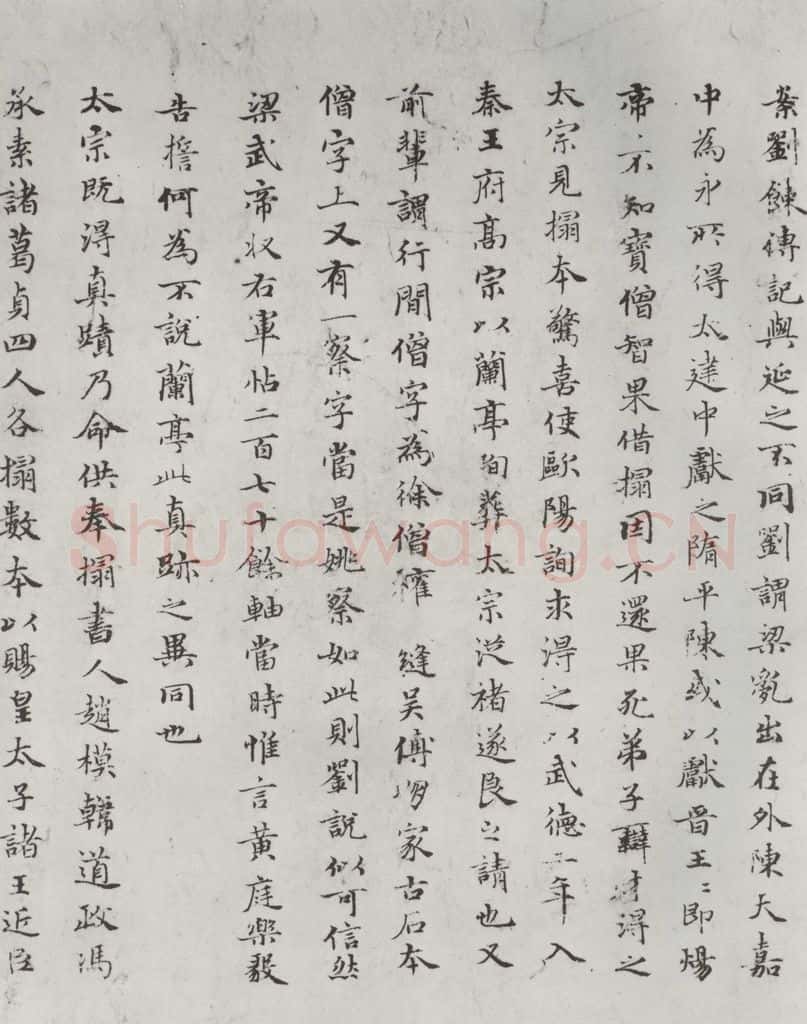 案劉餗傳記與延之不同劉謂梁亂出在外陳天嘉
中為永所得太建中獻之隋平陳或以獻晉王〻即煬
帝不知寶僧智果借搨因不還果死弟子辯才得之
太宗見搨本驚喜使歐陽詢求得之以武德二年入
秦王府高宗以蘭亭殉葬太宗從褚遂良之請也又
前輩謂行間僧字為徐僧權縫吴傅朋家古石本
僧字上又有一察字當是姚察如此則劉說似可信然
梁武帝收右軍帖二百七十餘軸當時惟言黃庭樂毅
告誓何為不說蘭亭此真跡之異同也
太宗既得真蹟乃命供奉搨書人趙模韓道政馮
承素諸葛貞四人各搨數本以賜皇太子諸王近臣
Shufawang.CN